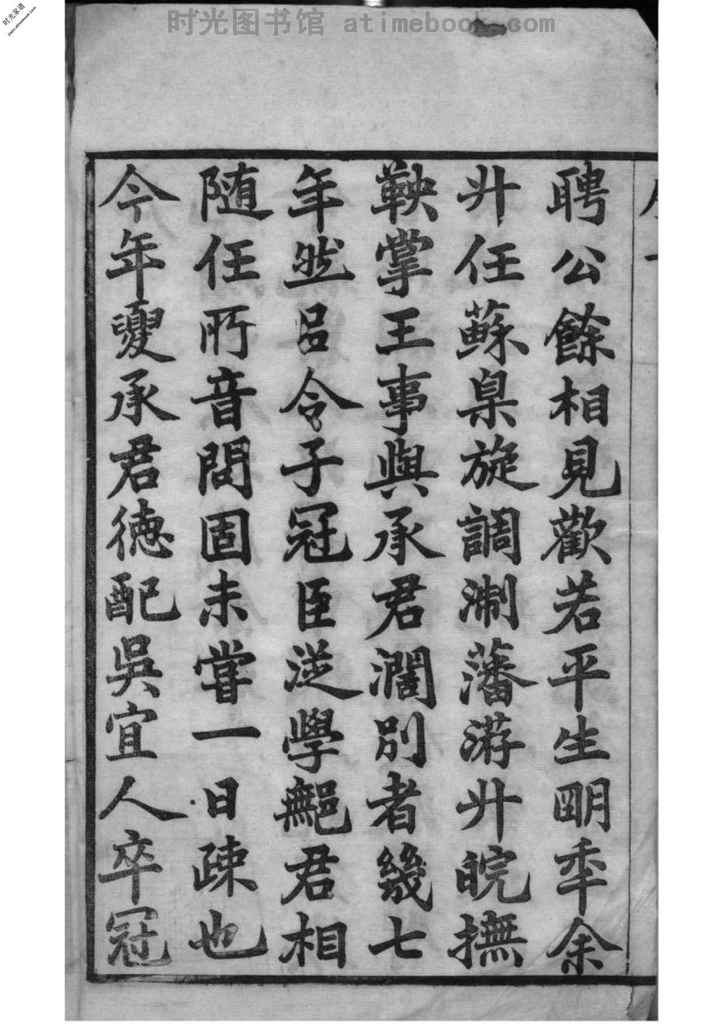 时光图书馆 atimebook.com
聘公餘相見歡若平生明年余
升任蘇臬旋調淛藩游升皖撫
鞅掌王事與承君濶別者幾七
年然呂令子冠臣逆學無君相
随任所音問固未嘗一日疎也
今年夏承君德配吳宜人卒冠